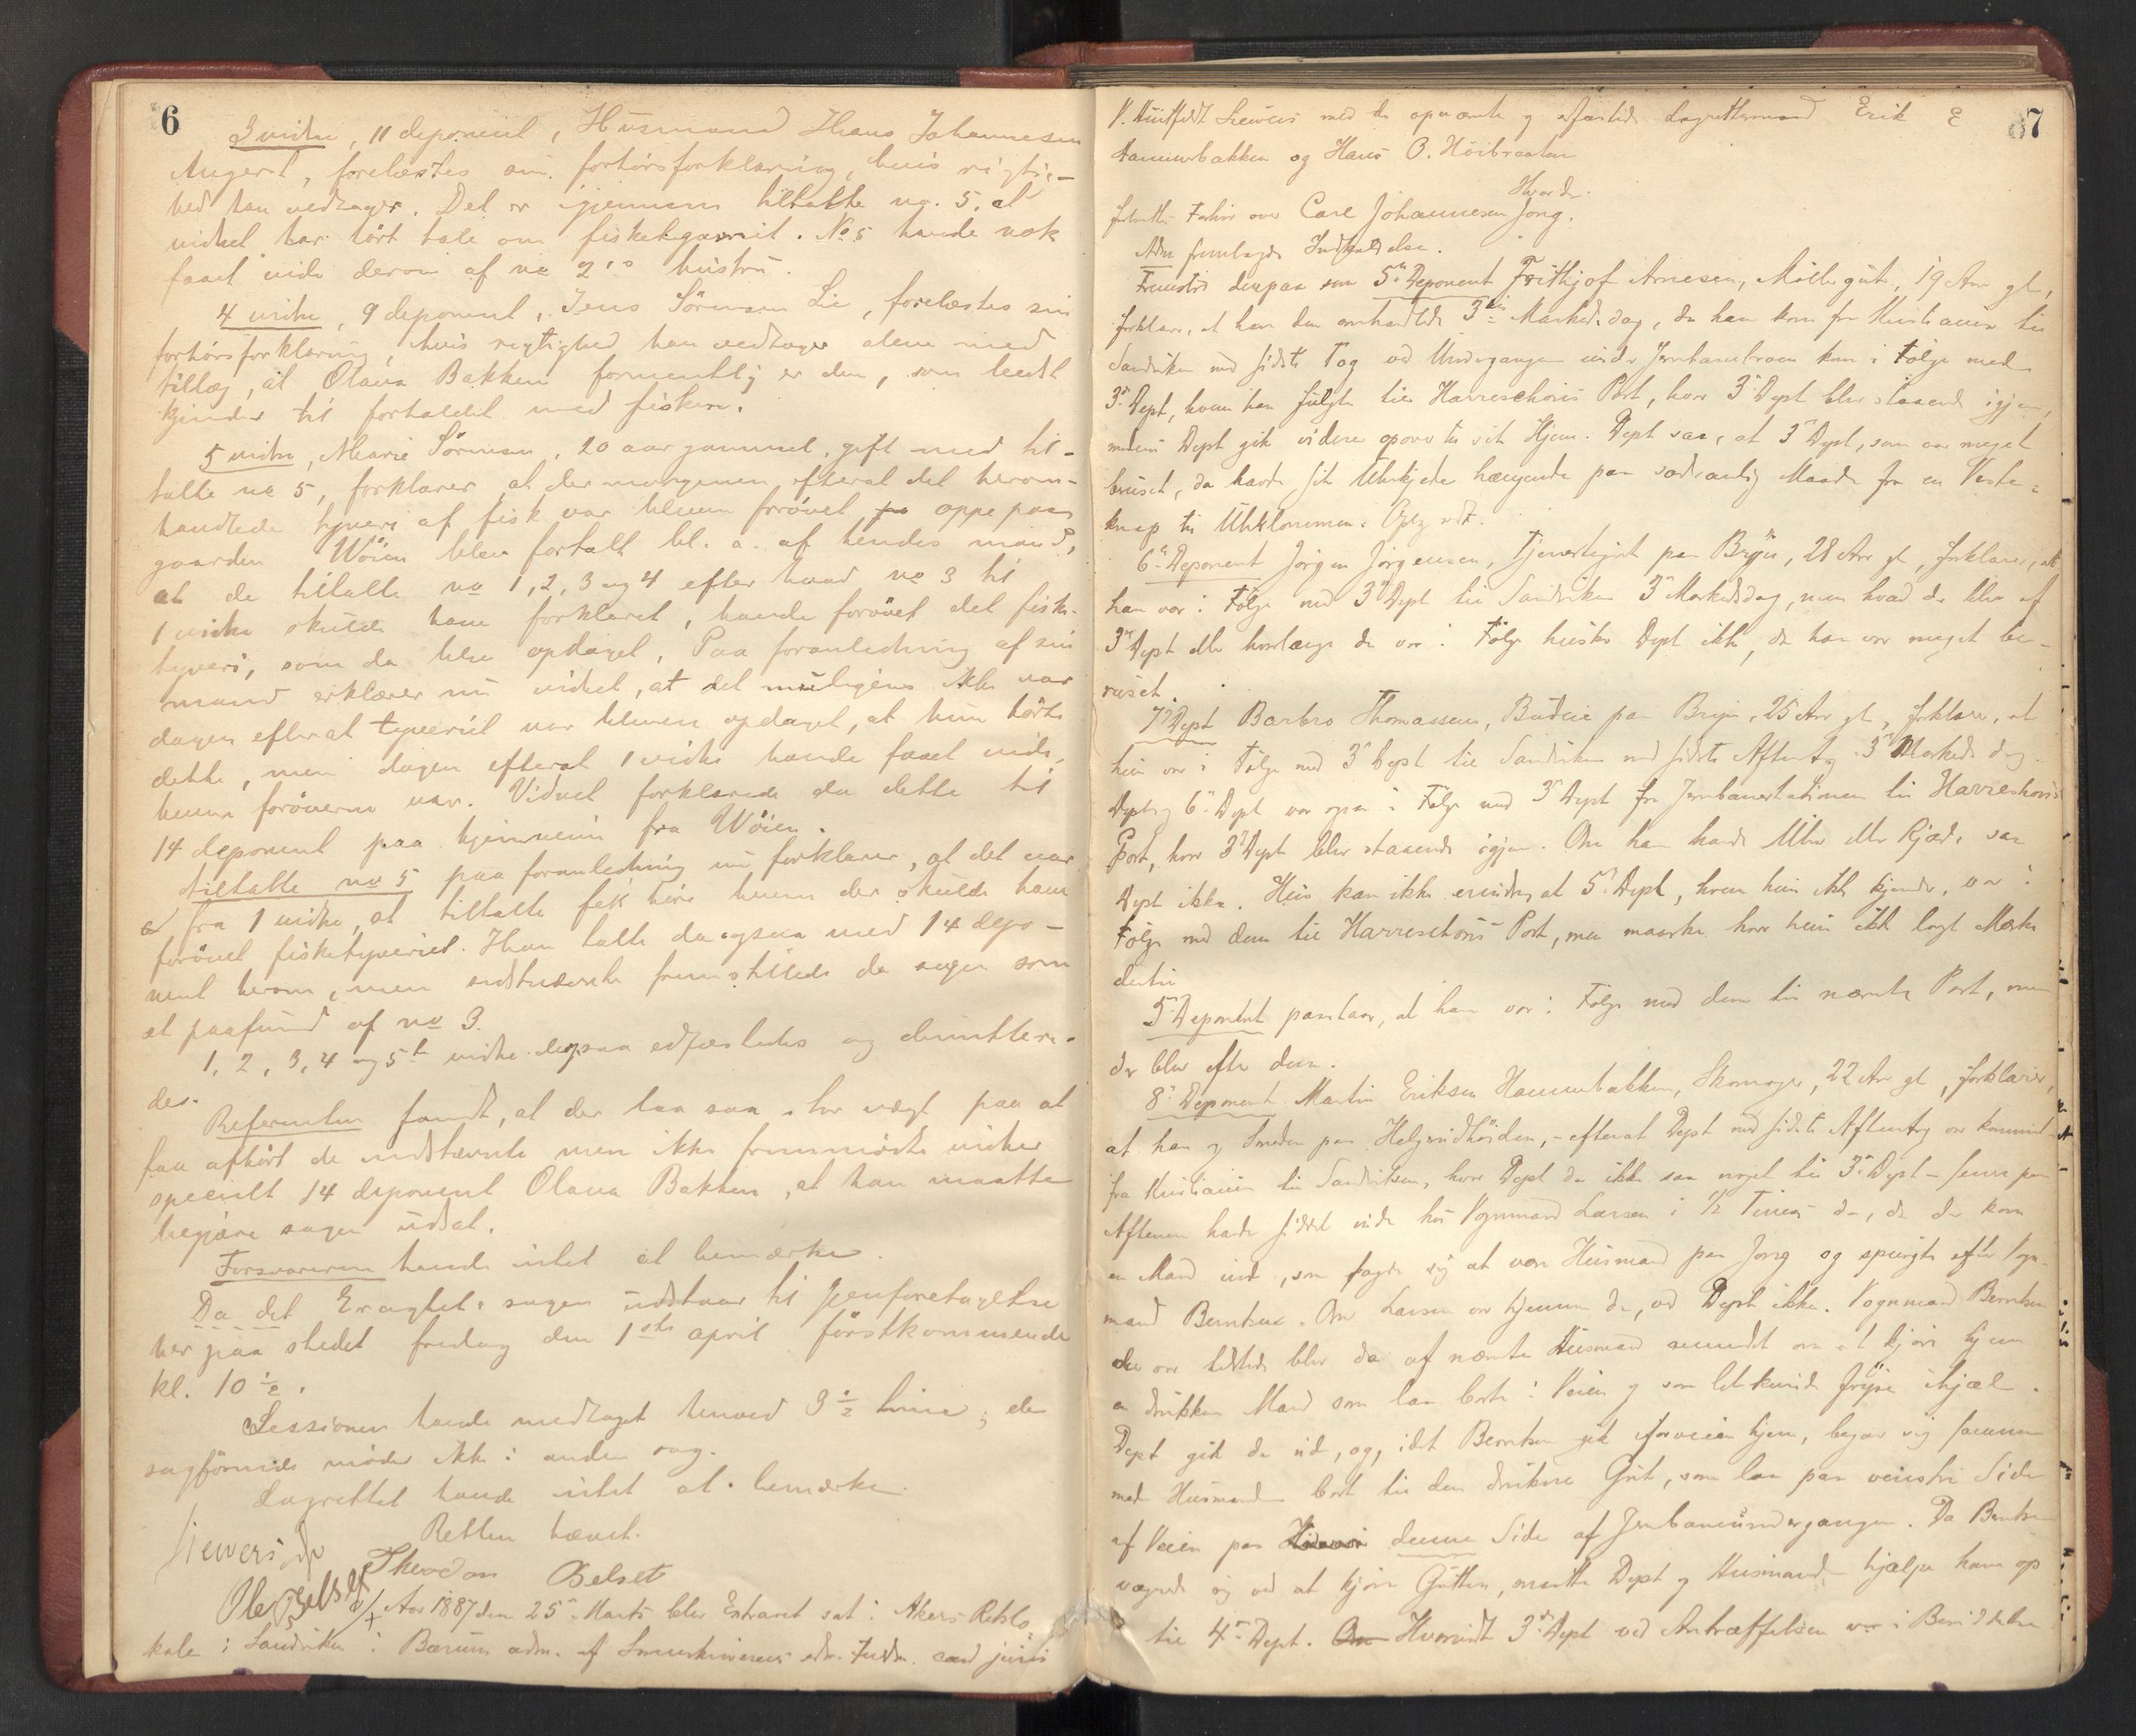 6
3 vidne, 11 deponent, Husmand Hans Johannesen
Angerst, forelæstes sin forhörsforklaring, hvis rigtig-
hed han vedtager. Det er igjennem tiltalte no. 5, at
vidnet har hört tale om fisketyveriet. No 5 havde nok
faaet vide derom af no 2's hustru.
4 vidne, 9 deponent, Jens Sörensen Lie, forelæstes sin
forhörsforklaring, hvis rigtighed han vedtager alene med
tillæg, at Olava Bakken formentlig er den, som bedst
kjender til forholdet med fisken.
5 vidne, Marie Sörensen, 20 aar gammel, gift med til-
talte no 5, forklarer at der morgenen efterat det herom-
handlede tyveri af fisk var bleven forövet oppe paa
gaarden Wöien blev fortalt bl. a. af hendes mand,
at de tiltalte no 1, 2, 3 og 4 efter hvad no 3 til
1 vidne skulde have forklaret, havde forövet det fiske-
tyveri, som da blev opdaget. Paa foranledning af sin
mand erklærer nu vidnet, at det muligens ikke var
dagen efterat tyveriet var bleven opdaget, at hun hörte
dette, men dagen efterat 1 vidne havde faaet vide,
hvem foröverne var. Vidnet forklarede da dette til
14 deponent paa hjemveien fra Wöien.
Tiltalte no 5 paa foranledning nu forklarer, at det var
fra 1 vidne, at tiltalte fik höre hvem der skulde have
forövet fisketyveriet. Han talte da ogsaa med 14 depo-
nent herom, men fremstillede da sagen som
et paafund af no 3.
1, 2, 3, 4 og 5te vidne derpaa edfæstedes og dimittere-
des.
Referenten fandt, at der laa saa stor vægt paa at
faa afhört de indstævnte men ikke fremmödte vidner
specielt 14 deponent Olava Bakken, at han maatte
begjære sagen udsat.
Forsvareren havde intet at bemærke.
Da det Eragtet: sagen udstaar til gjenforetagelse
her paa stedet fredag den 1ste april förstkommende
kl. 10 ½.
Sessionen havde medtaget henved 3 ½ time; de
sagförende möder ikke i anden sag.
Lagrettet havde intet at bemærke.
Retten hævet.
Siewers
Theodor Belset
Ole Belset
Aar 1887 den 25de Marts blev Extraret sat i Akers Retslo-
kale i Sandviken i Bærum adm. af Sorenskriverens edsv. Fuldm. cand juris
87
V. Huitfeldt Siewers med de opnævnte og edfæstede Lagrettemænd Erik E
Hammerbakken og Hans O. Höibraaten
Hvorda
fortsattes Forhör over Carl Johannesen Jong.
Adm fremlagde Indkaldelse.
Fremstod derpaa som 5te Deponent Frithjof Arnesen, Möllegut, 19 Aar gl,
forklarer, at han den omhandlede 3die Markedsdag, da han kom fra Kristiania til
Sandviken med sidste Tog ved Undergangen under Jernbanebroen kom i Fölge med
3die Dept, hvem han fulgte til Harreschous Port, hvor 3die Dept blev staaende igjen,
medens Dept gik videre opover til sit Hjem. Dept saa, at 3die Dept, som var meget
beruset, da havde sit Uhrkjede hængende paa sædvanlig Maade fra en Veste-
knap til Uhrlommen. Oplæst vdt.
6te Deponent Jörgen Jörgensen, Tjenestegut paa Bryn, 28 Aar gl, forklarer, at
han var i Fölge med 3die Dept til Sandviken 3die Markedsdag, men hvad der blev af
3die Dept eller hvorlænge de var i Fölge husker Dept ikke, da han var meget be-
ruset.
7de Dept Barbro Thomassen, Budeie paa Bryn, 25 Aar gl, forklarer, at
hun var i Fölge med 3die Dept til Sandviken med sidste Aftentog 3die Markedsdag.
Dept og 6te Dept var ogsaa i Fölge med 3die Dept fra Jernbanestationen til Harreschous
Port, hvor 3die Dept blev staaende igjen. Om han havde Uhr eller Kjæde saa
Dept ikke. Hun kan ikke erindre, at 5te Dept, hvem hun ikke kjender, var i
Fölge med dem til Harreschous Port, men maaske har hun ikke lagt Mærke
dertil
5te Deponent paastaar, at han var i Fölge med dem til nævnte Port, men
der blev efter dem.
8de Deponent Martin Eriksen Hammerbakken, Skomager, 22 Aar gl, forklarer,
at han og Smeden paa Helgerudhöiden, – efterat Dept med sidste Aftentog var kommet
fra Kristiania til Sandviken, hvor Dept da ikke saa noget til 3die Dept – senere paa
Aftenen havde siddet inde hos Vognmand Larsen i ½ Times da, da der kom
en Mand ind, som sagde sig at være Husmand paa Jong og spurgte efter Vogn-
mand Berntsen. Om Larsen var hjemme da, ved Dept ikke. Vognmand Berntsen
der var tilstede blev da af nævnte Husmand anmodet om at kjöre hjem
en drukken Mand som laa borte i Veien og som let kunde fryse ihjæl.
Dept gik da ud, og, idet Berntsen gik forveien hjem, begav sig sammen
med Husmanden bort til den drukne Gut, som laa paa venstre Side
af Veien paa denne Side af Jernbaneundergangen. Da Berntsen
vægrede sig ved at kjöre Gutten, maatte Dept og Husmanden hjælpe ham op
til 4de Dept. Hvorvidt 3die Dept ved Antræffelsen var i Besiddelse